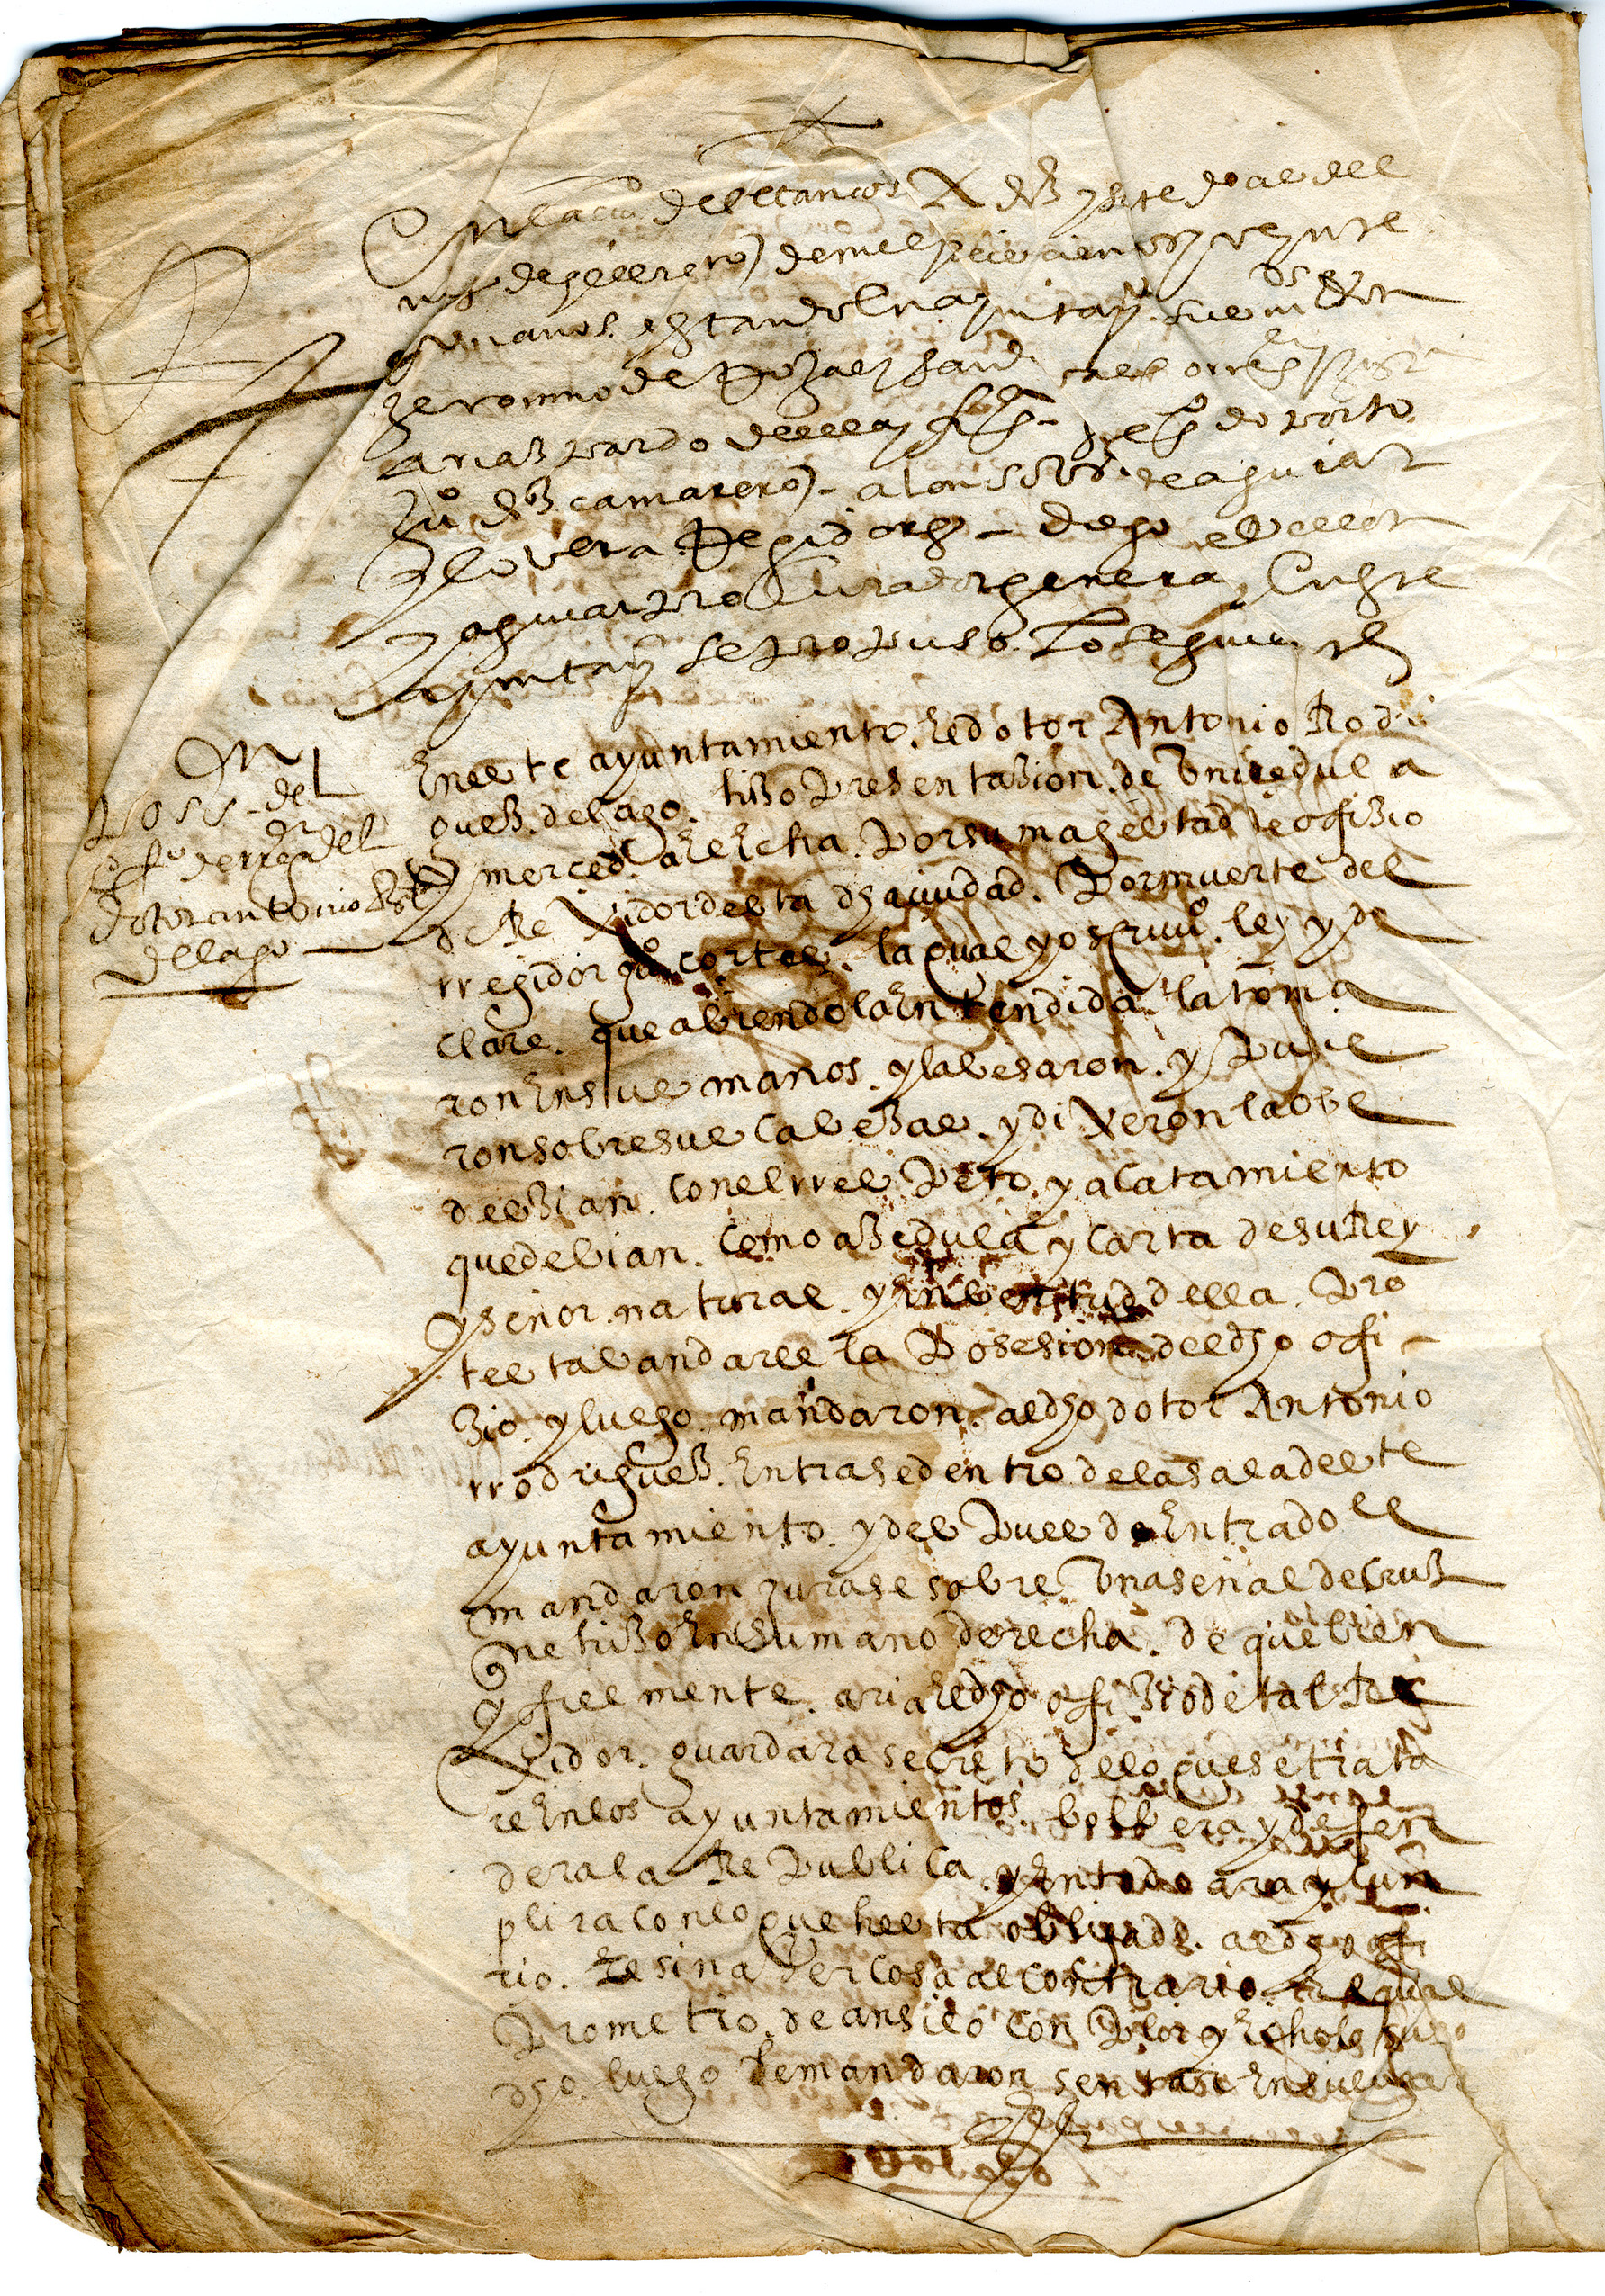 En la ciu de betanços A diez y siete dias del
mes de hebrero de mill y seis cientos y veynte
y un anos estando en ayuntamy sus ms
geronimo de
arias pardo de
Juo diz camarero - alonso de aguiar
y lovera Regidores - diego
y aguiar procurador general En este
ayuntamy se propuso lo seguiente
Poss. del
offo de rregor del
dotor antonio Rz
del lago
En este ayuntamiento. El dotor Antonio Rodri
guez. del lago. hizo presentazion. de una cedula
y merced. a el echa. por su magestad de offizio
de Rexidor desta dha ciudad. por muerte del
rregidor juo cortes. la qual yo scrivo. ley y de
clare. que abiendola entendida. la toma
ron en sus manos. y la besaron. y pusie
ron sobre sus cabezas. y dixeron la obe
deszian. con el rrespeto. y acatamiento
que debian. como a zedula y carta de su Rey
y senor. natural. y en bertud della. pro
testaban darle la posesion del dho offi
zio. y luego. mandaron. al dho dotor Antonio
rrodriguez. Entrase dentro de la sala deste
ayuntamiento. y despues de Entrado le
mandaron jurase sobre una senal de cruz
que hizo en su mano derecha. de que bien
y fielmente. aria el dho offizio de tal Re
xidor. guardara secreto de lo que se trata
re en los ayuntamientos. bolbera y defen
dera la Republica. y en todo ara y cun
plira con lo que hesta obligado. al dho ofi
zio. Este sin aber cosa al contrario. El qual
prometio. de ansi lo conplir y echo lo suso
dho. luego le mandaron sentase en su lugar